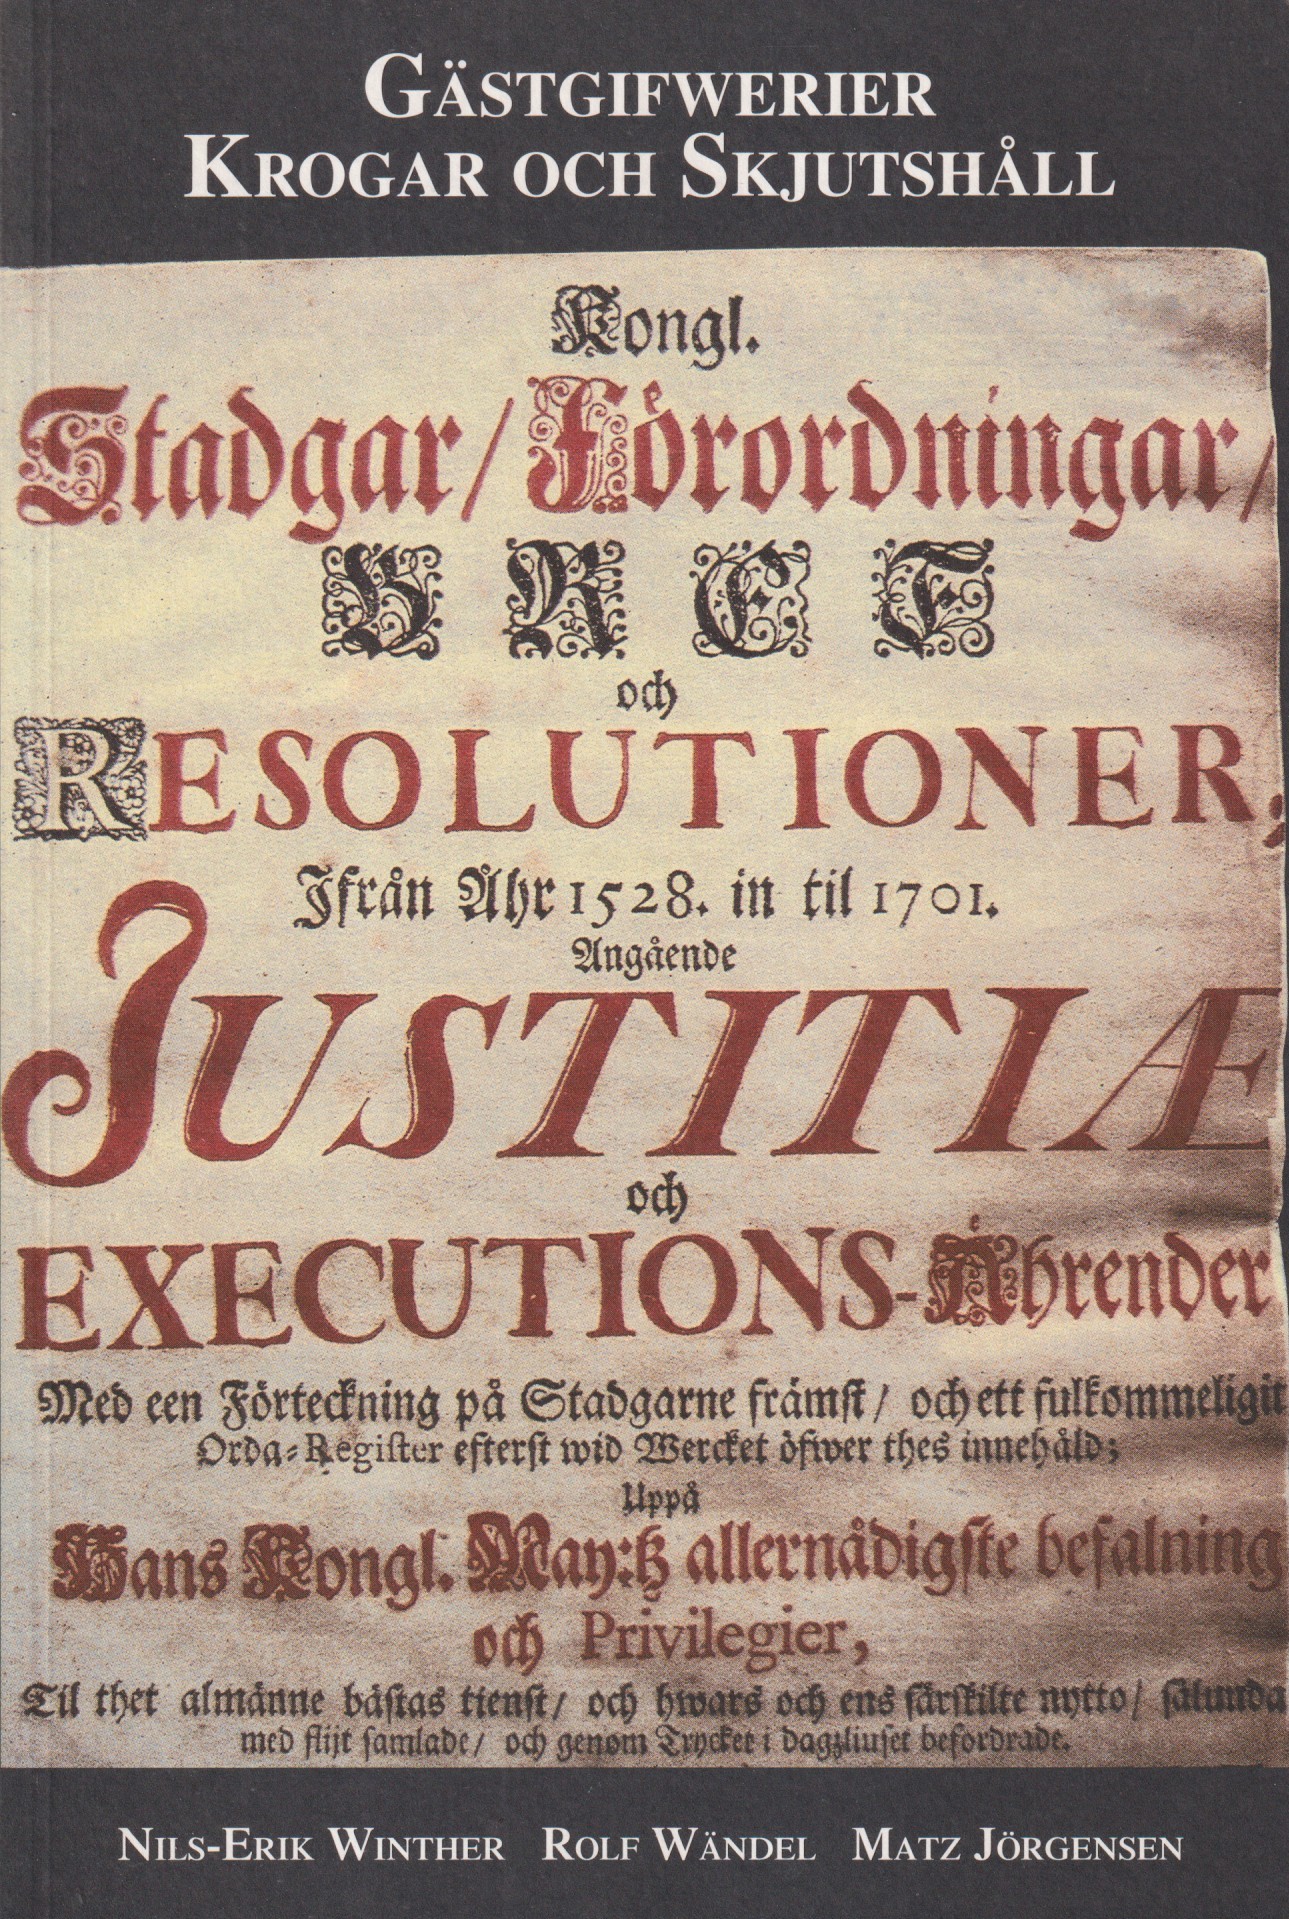 GÄSTGIFWERIER
KROGAR OCH SKJUTSHÅLL
Kongl.
Stadgar/ Förordningar/
BREF
och
RESOLUTIONER,
Ifrån Åhr 1528. in til 1701.
Angående
JUSTITIÆ
och
EXECUTIONS-Åhrender
Med een Förteckning på Stadgarne främst/ och ett fulkommeligit
Orda-Register efterst wid Wercket öfwer thes innehåld;
Uppå
Hans Kongl. May:tz allernådigste befalning
och Privilegier,
Til thet almänne bästas tienst/ och hwars och ens särskilte nytto/ sålunda
med flijt samlade/ och genom Trycket i dagzliuset befordrade.
NILS-ERIK WINTHER ROLF WÄNDEL MATZ JÖRGENSEN